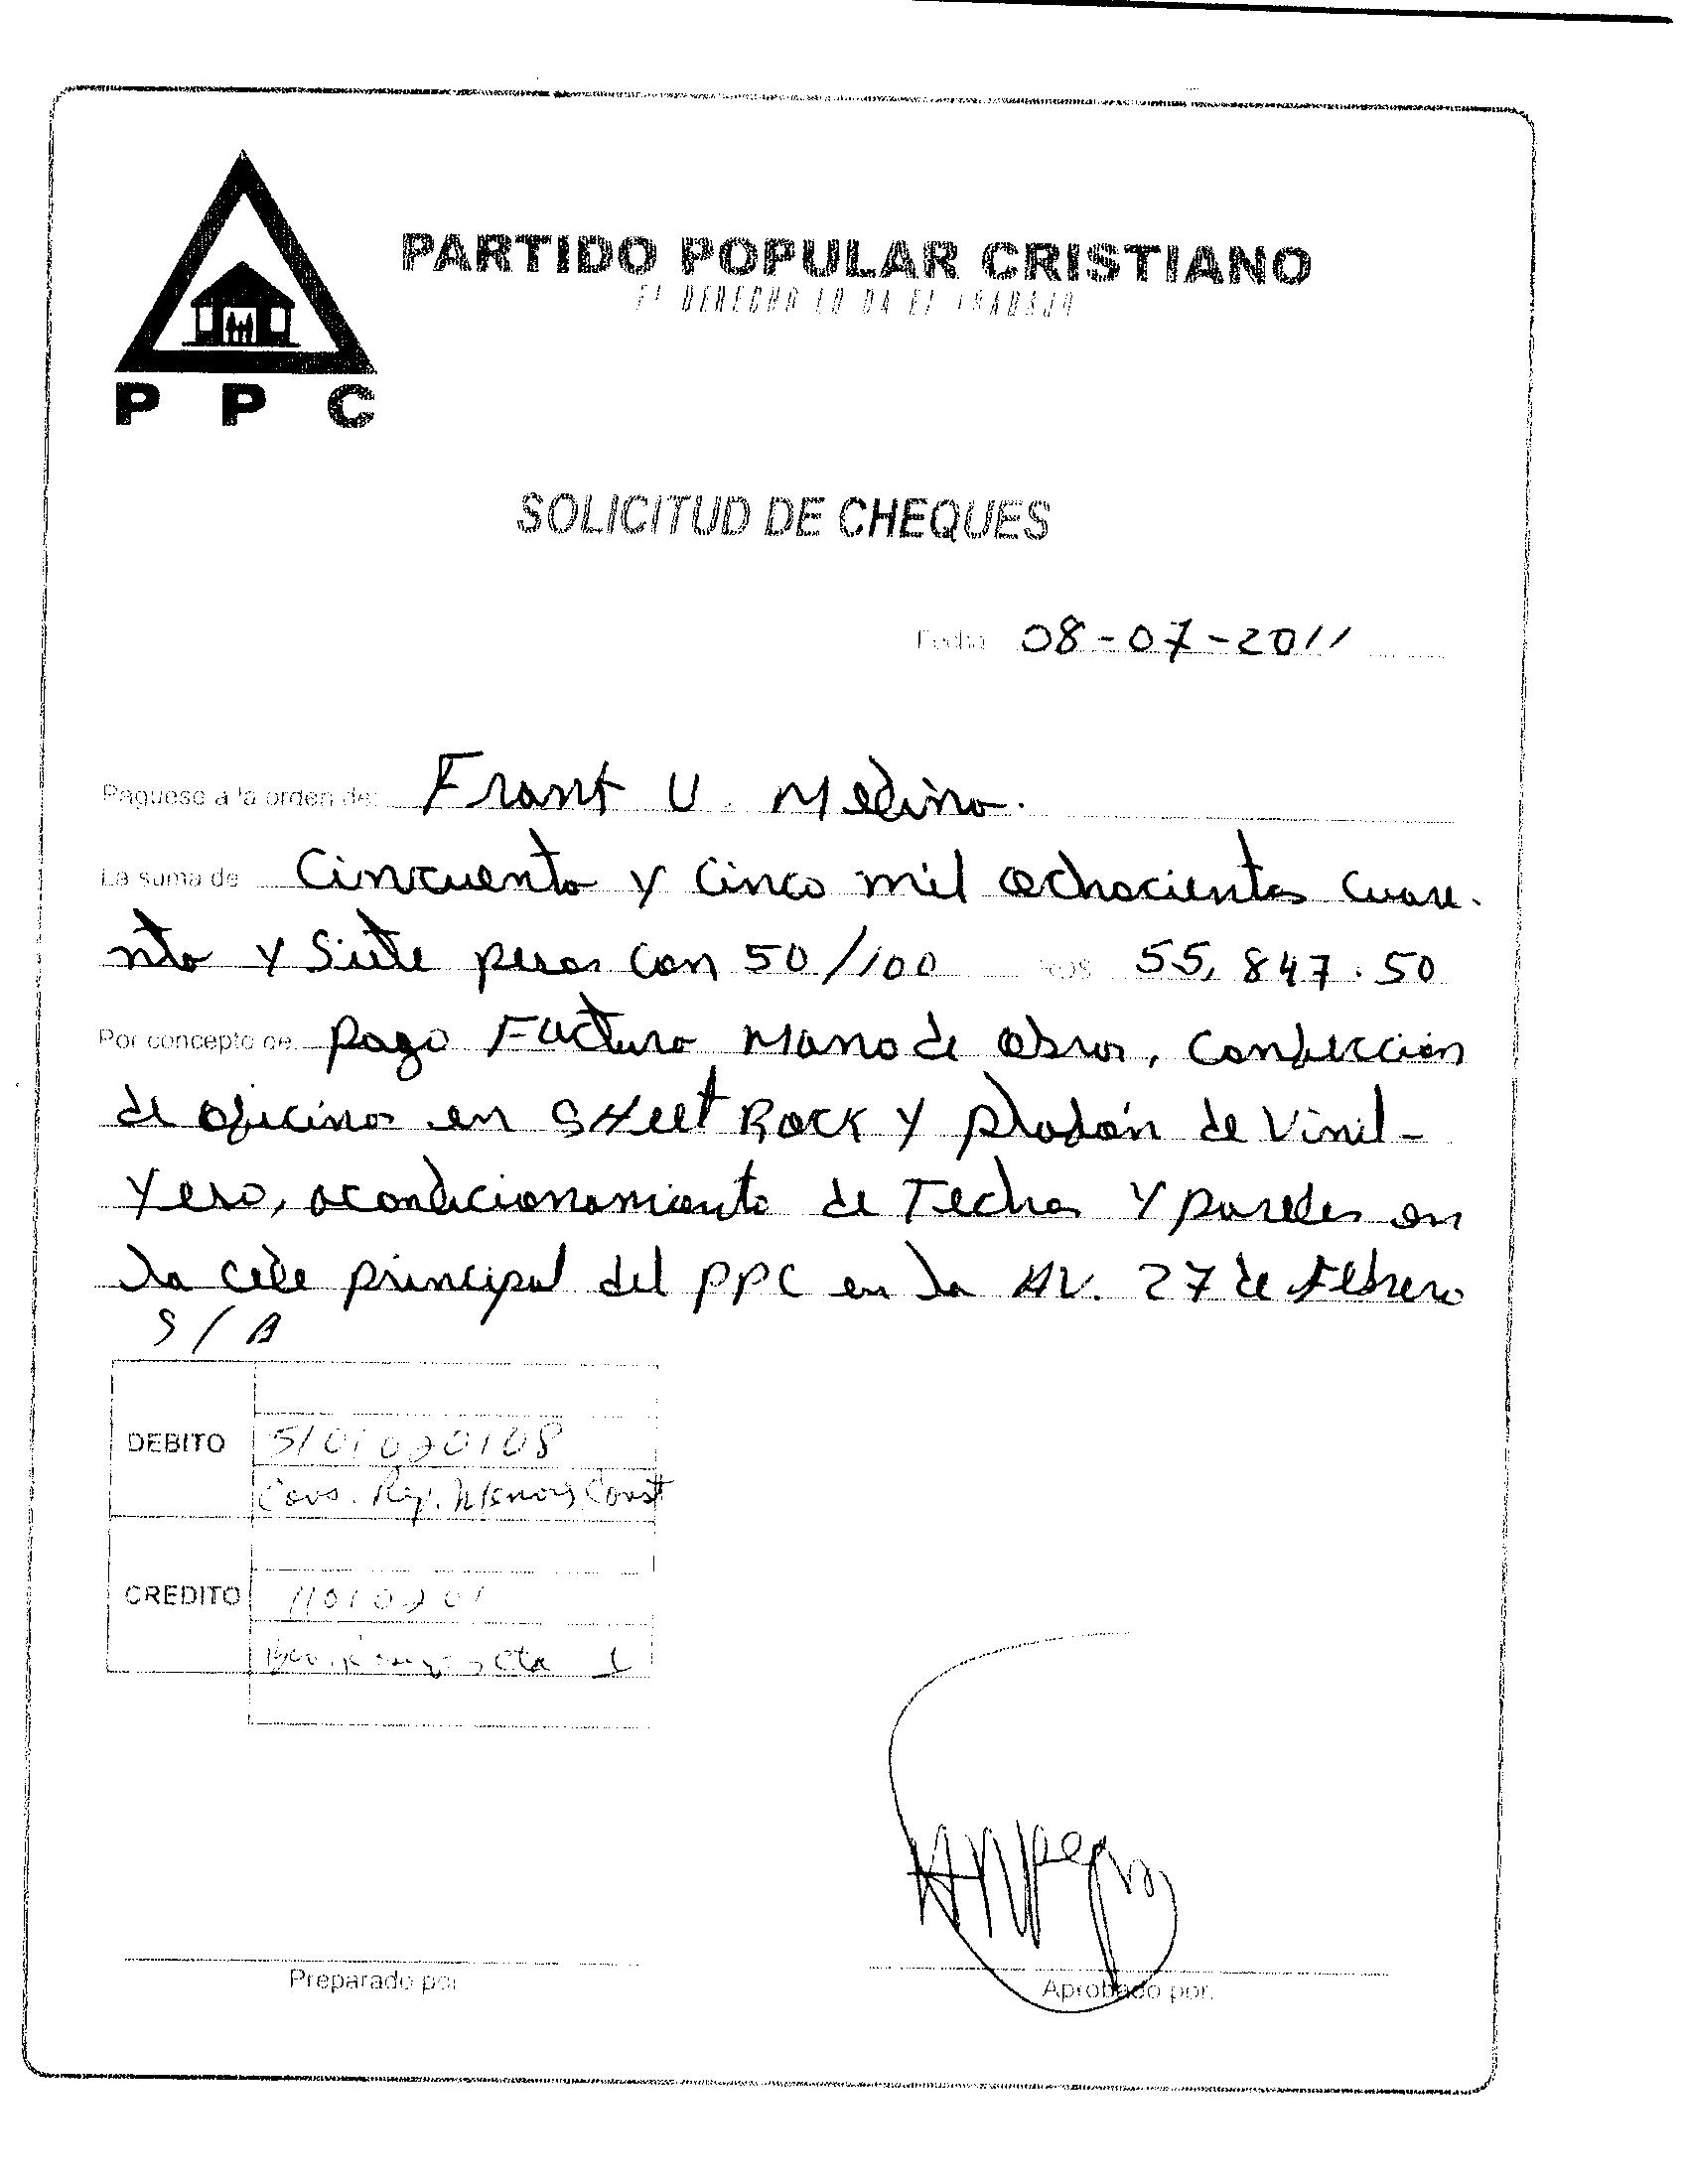 PARTIDO POPULAR CRISTIANO
EL DERECHO LO DA EL TRABAJO
P P C
SOLICITUD DE CHEQUES
Fecha 08-07-2011
Paguese a la orden de: Frant U. Medina.
La suma de Cincuenta y Cinco mil ochocientos Cuare-
nta y Siete pesos Con 50/100 RD$ 55,847.50
Por concepto de: Pago Factura Mano de Obra, Confección
de oficina en SHeet Rock y plafón de Vinil-
Yeso, acondicionamiento de Techos Y paredes en
la cede principal del PPC en la AV. 27 de Febrero
S/A
DEBITO 5101020108
Cons. Rep. Const
CREDITO 11010201
Cta 1
Preparado por
Aprobado por.